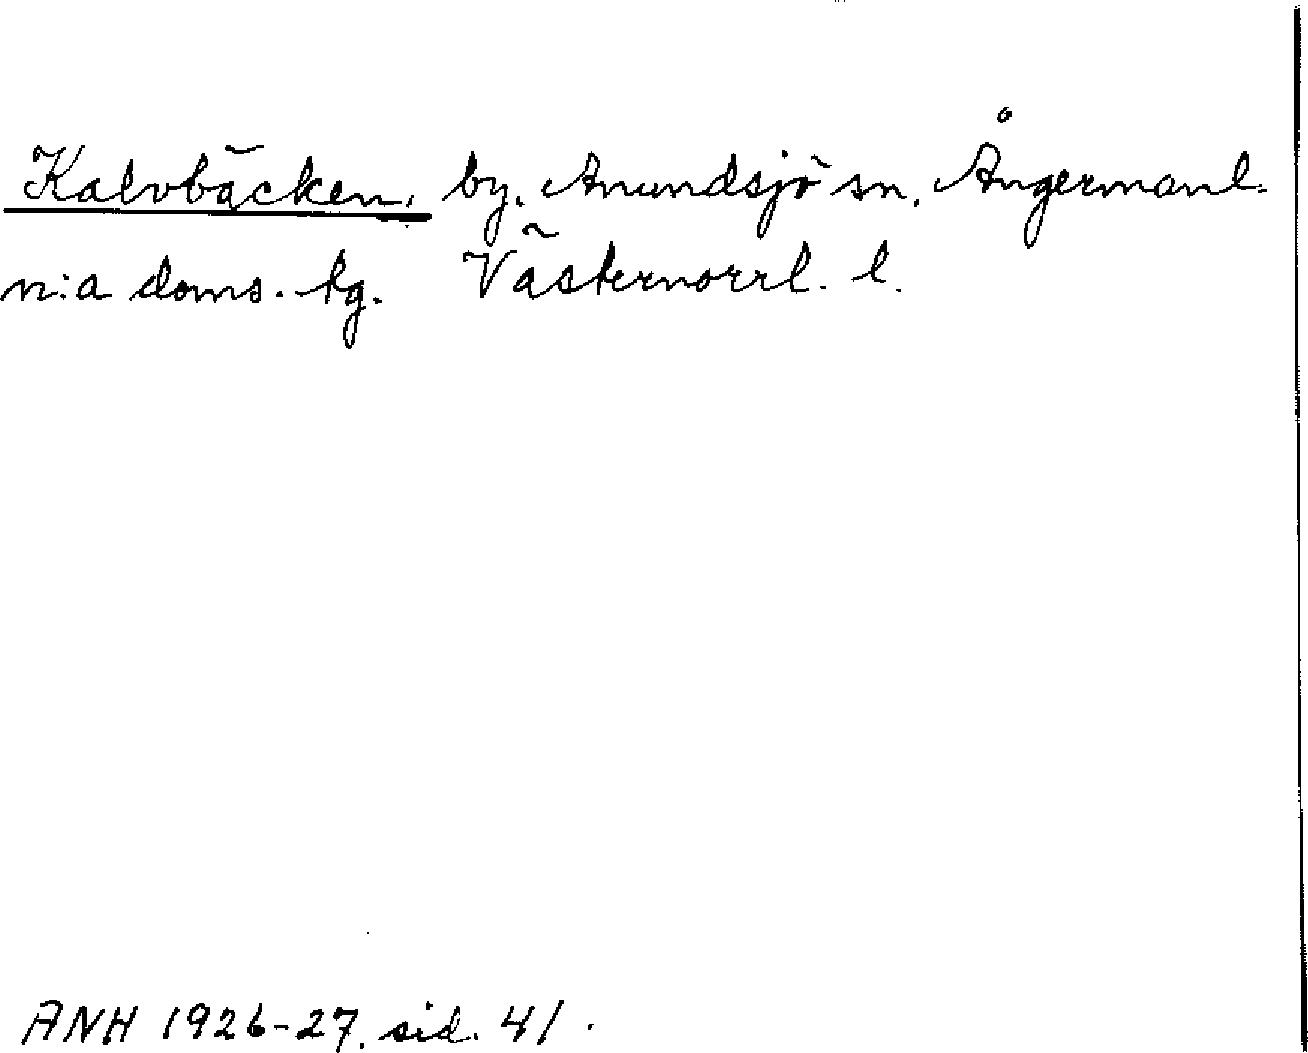 Kalvbäcken, by, Anundsjö sn, Ångermanl.
n:a doms. tg. Västernorrl. l.
ANH 1926-27, sid. 41.